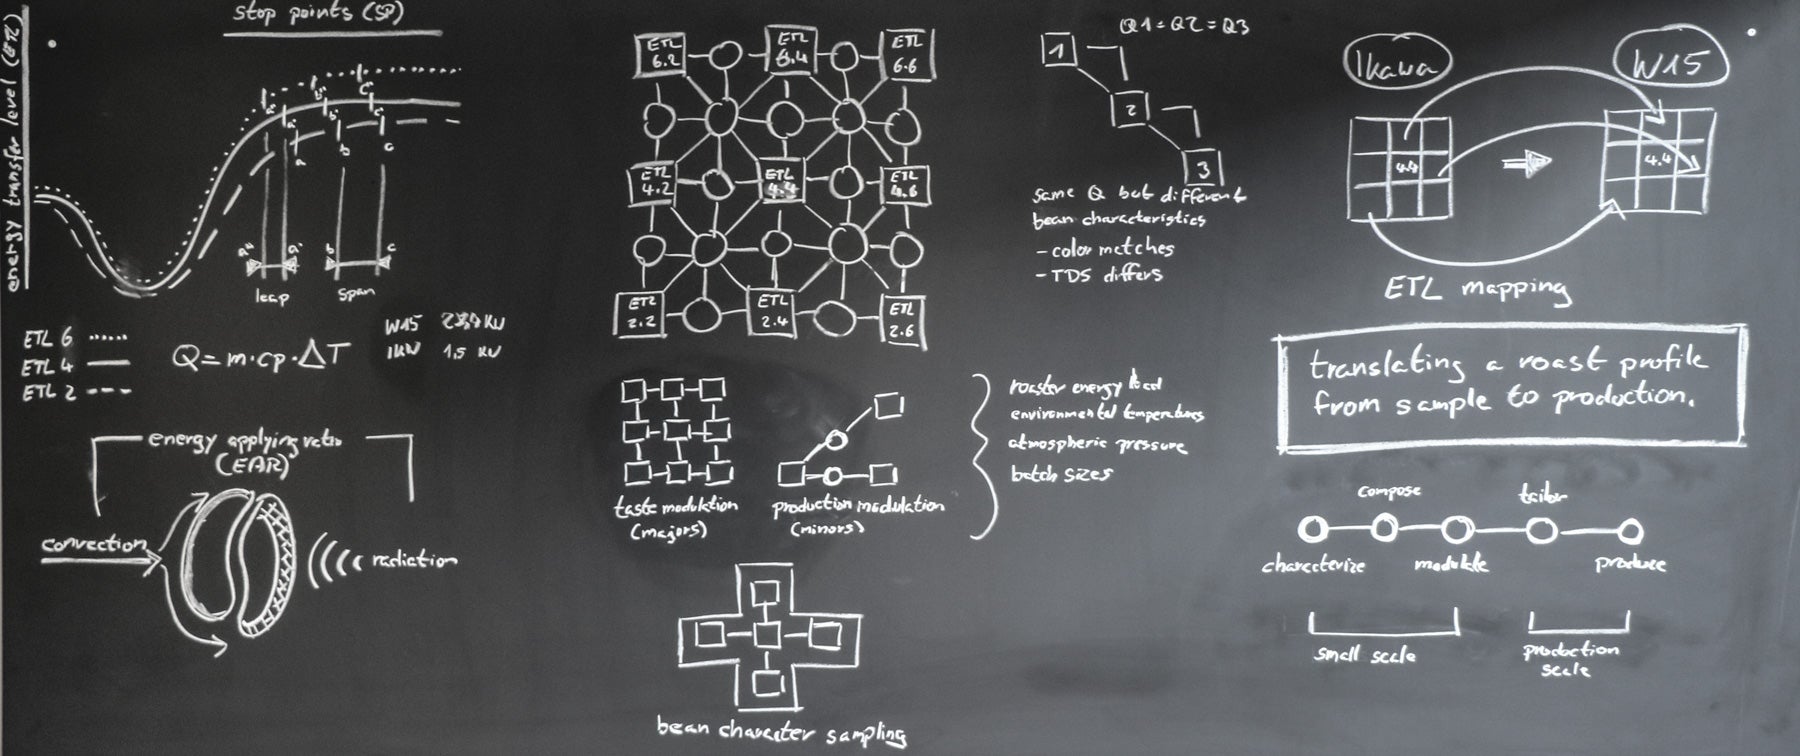 stop points (SP)
energy transfer level (ETL)
a" b" c"
a' b' c'
a b c
a" a' b c
leap span
ETL 6
ETL 4
ETL 2
Q = m·cp·ΔT
W15
1,5 KW
energy applying ratio
(EAR)
convection
radiation
ETL 6.2
ETL 6.4
ETL 6.6
ETL 4.2
ETL 4.4
ETL 4.6
ETL 2.2
ETL 2.4
ETL 2.6
taste modulation
(majors)
production modulation
(minors)
roaster energy load
environmental temperatures
atmospheric pressure
batch sizes
bean character sampling
Q1 = Q2 = Q3
1
2
3
same Q but different
bean characteristics
- color matches
- TDS differs
Ikawa
W15
4.4
4.4
ETL mapping
translating a roast profile
from sample to production.
compose tailor
characterize modulate produce
small scale
production
scale